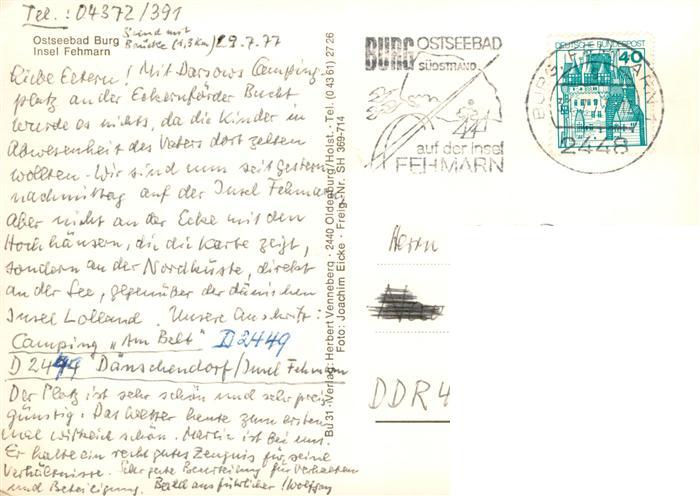 Tel.: 04372/391
Ostseebad Burg
Insel Fehmarn
Sund mit
Brücke (1,3 km)
29.7.77
Liebe Eltern! Mit Darsows Camping-
platz an der Eckernförder Bucht
wurde es nichts, da die Kinder in
Abwesenheit des Vaters dort zelten
wollten. Wir sind nun seit gestern
nachmittag auf der Insel Fehmarn
Aber nicht an der Ecke mit den
Hochhäusern, die die Karte zeigt,
sondern an der Nordküste, direkt
an der See, gegenüber der dänischen
Insel Lolland. Unsere Anschrift:
Camping „Am Belt" D2449
D 2449 Dänschendorf/Insel Fehmarn
Der Platz ist sehr schön und sehr preis-
günstig. Das Wetter heute zum ersten
mal wirklich schön. Martin ist bei uns.
Er hatte ein recht gutes Zeugnis für seine
Verhältnisse. Sehr gute Beurteilung für Verhalten
und Beteiligung. Bald ausführlicher! Wolfgang
Bu 31 · Verlag: Herbert Venneberg · 2440 Oldenburg/Holst. · Tel. (0 43 61) 27 26
Foto: Joachim Eicke · Freig.-Nr. SH 369-714
BURG OSTSEEBAD
SÜDSTRAND
auf der Insel
FEHMARN
DEUTSCHE BUNDESPOST
40
2448
Herrn
DDR 4